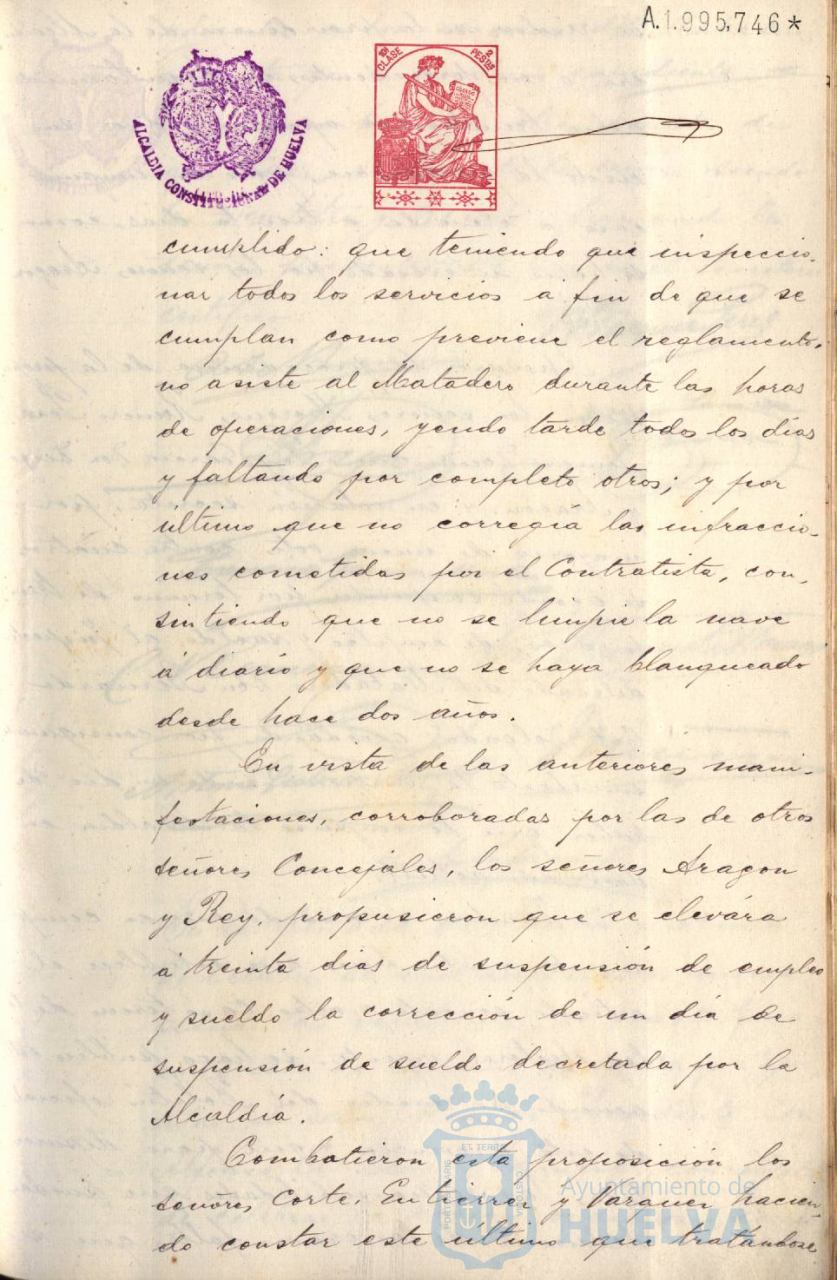 A.1.995,746*
10ª CLASE 2 PESTAS
ALCALDIA CONSTITUCIONAL DE HUELVA
cumplido: que teniendo que inspeccio-
nar todos los servicios a fin de que se
cumplan como previene el reglamento,
no asiste al Matadero durante las horas
de operaciones, yendo tarde todos los días
y faltando por completo otros; y por
último que no corregía las infraccio-
nes cometidas por el Contratista, con-
sintiendo que no se limpie la nave
á diario y que no se haya blanqueado
desde hace dos años.
En vista de las anteriores mani-
festaciones, corroboradas por las de otros
señores Concejales, los señores Aragon
y Rey, propusieron que se elevára
á treinta dias de suspensión de empleo
y sueldo la corrección de un día de
suspensión de sueldo decretada por la
Alcaldía.
Combatieron esta proposición los
señores Corte, y hacien-
do constar este último que tratándose
Ayuntamiento de
HUELVA